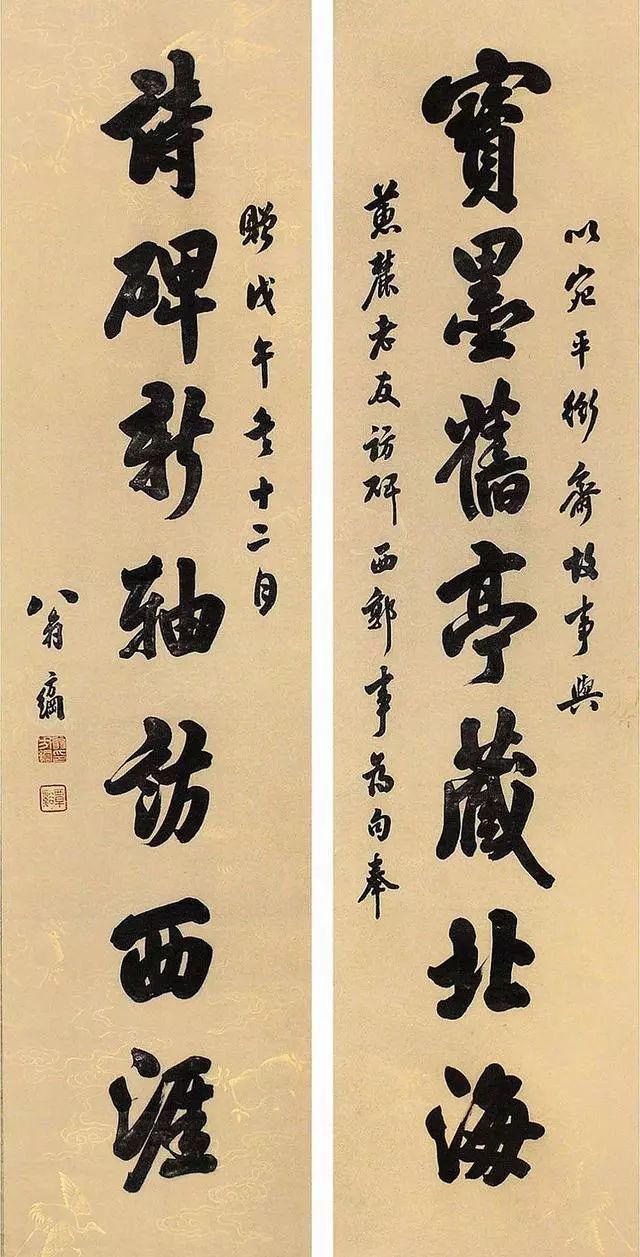 以宛平衙齋故事與
寶墨舊亭藏北海
蕙麓老友訪碑西郭事為句奉
贈戊午冬十二月
詩碑新軸訪西涯
翁方綱
覃谿